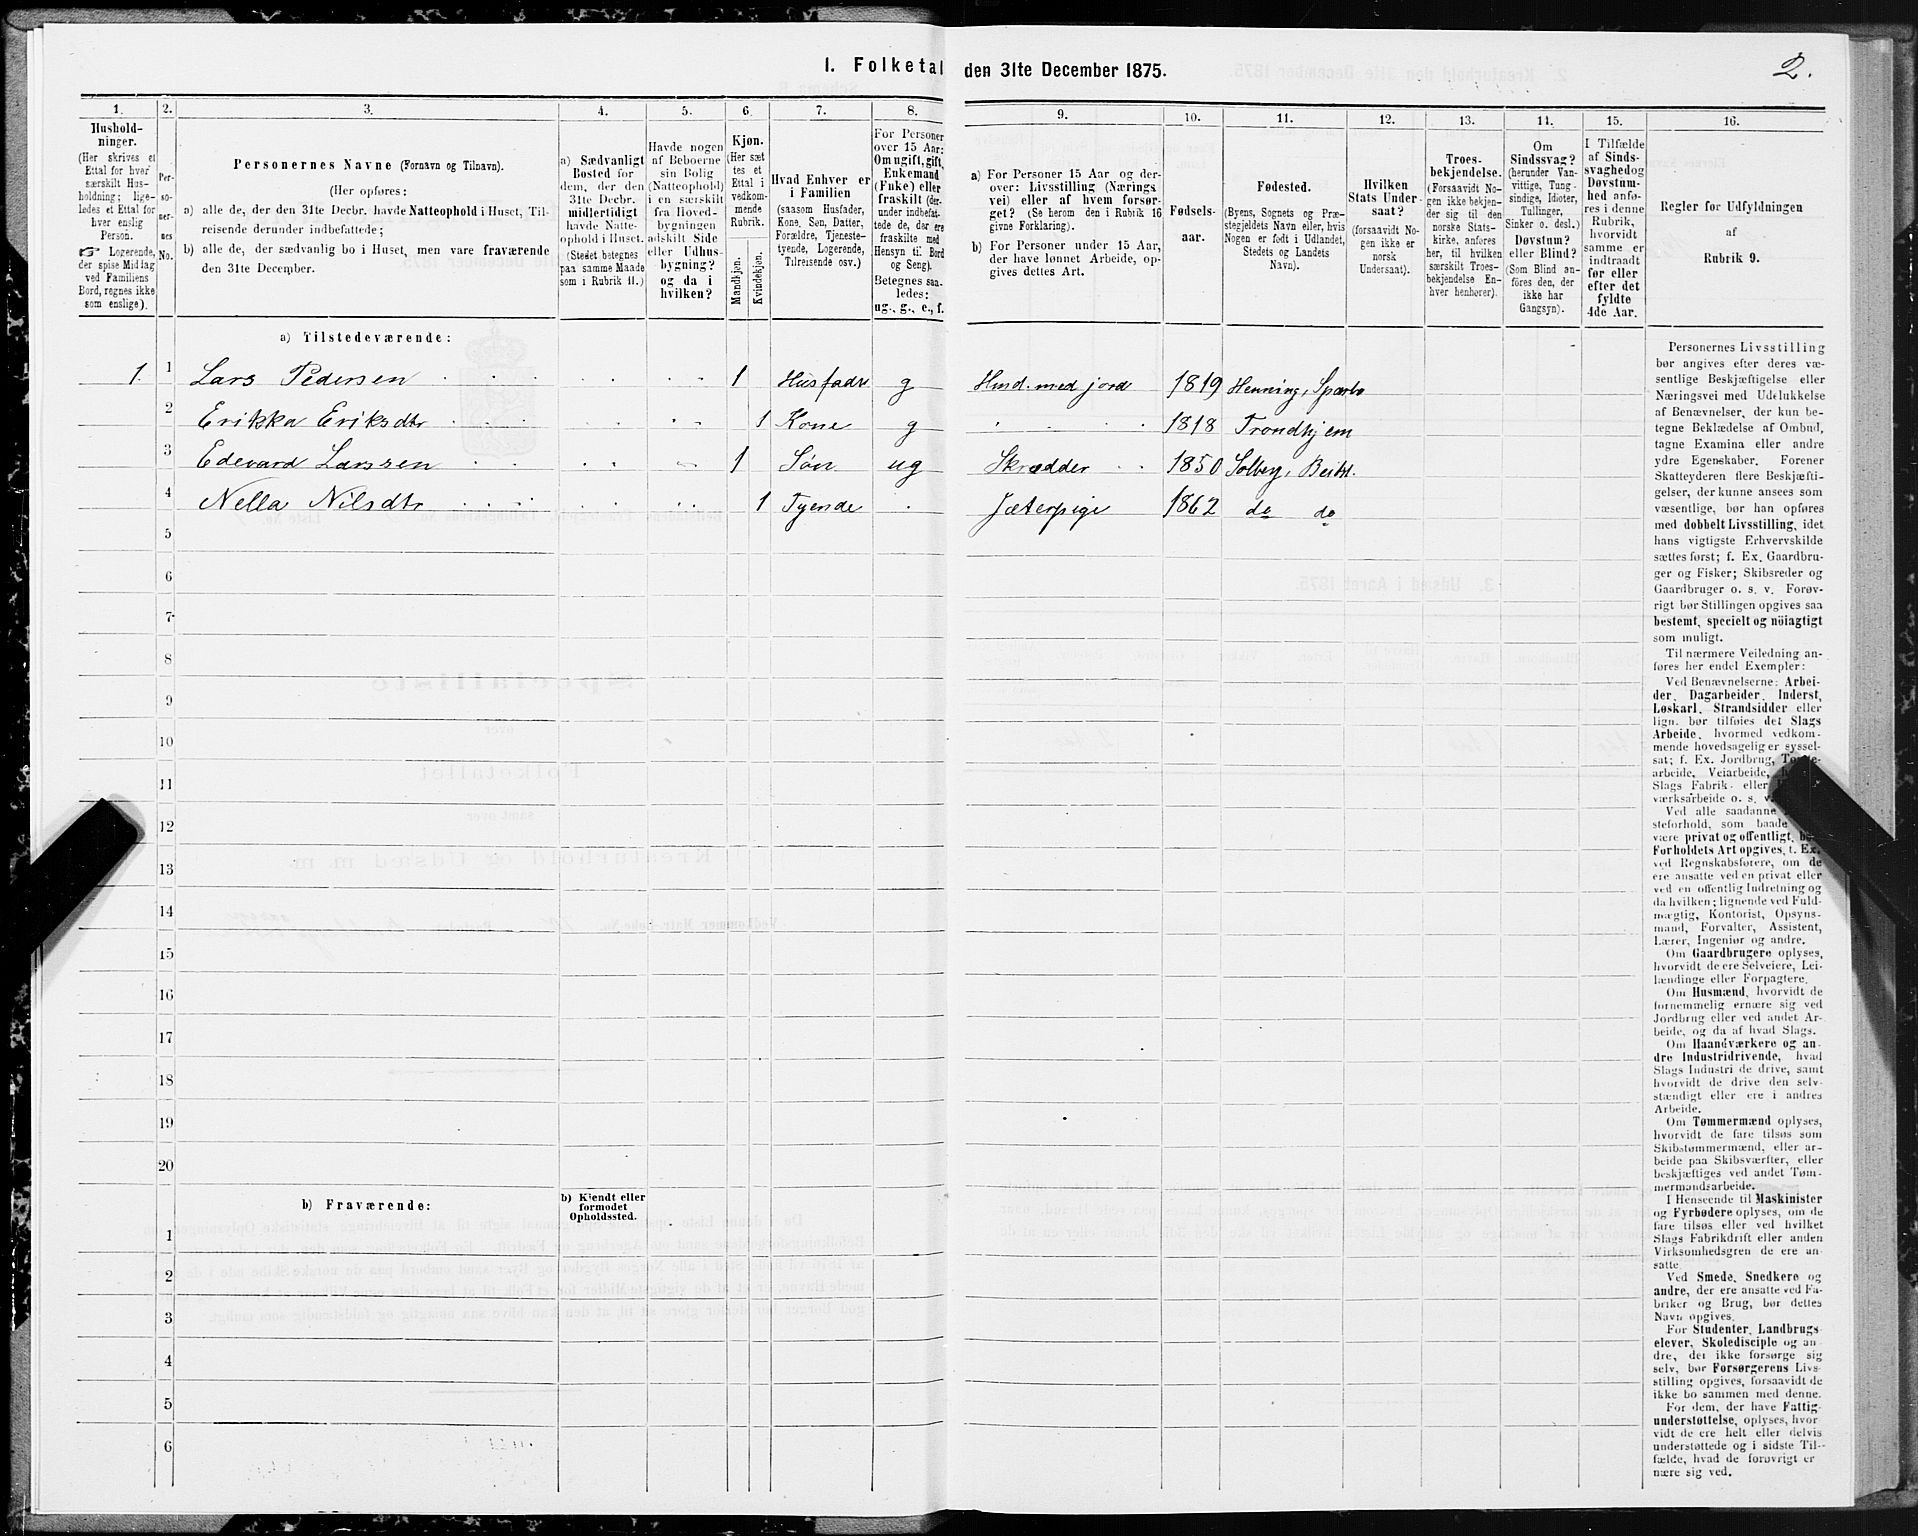 I. Folketal den 31te December 1875.
2.
1. 2. 3. 4. 5. 6. 7. 8. 9. 10. 11. 12. 13. 14. 15. 16.
Hushold-
ninger.
(Her skrives et
Ettal for hver
særskilt Hus-
holdning; lige-
ledes et Ettal for
hver enslig
Person.
☞ Logerende,
der spise Middag
ved Familiens
Bord, regnes ikke
som enslige).
Per-
so-
ner-
nes
No.
Personernes Navne (Fornavn og Tilnavn).
(Her opføres:
a) alle de, der den 31te Decbr. havde Natteophold i Huset, Til-
reisende derunder indbefattede;
b) alle de, der sædvanlig bo i Huset, men vare fraværende
den 31te December.
a) Sædvanligt
Bosted for
dem, der den
31te Decbr.
midlertidigt
havde Natte-
ophold i Huset.
(Stedet betegnes
paa samme Maade
som i Rubrik 11.)
Havde nogen
af Beboerne
sin Bolig
(Natteophold)
i en særskilt
fra Hoved-
bygningen
adskilt Side
eller Udhus-
bygning?
og da i
hvilken?
Kjøn.
(Her sæt
tes et
Ettal i
vedkom-
mende
Rubrik.
Mandkjøn.
Kvindekjøn.
Hvad Enhver er
i Familien
(saasom Husfader,
Kone, Søn, Datter,
Forældre, Tjeneste-
tyende, Logerende,
Tilreisende osv.)
For Personer
over 15 Aar:
Om ugift, gift,
Enkemand
(Enke) eller
fraskilt (der-
under indbefat-
tede de, der ere
fraskilte med
Hensyn til Bord
og Seng).
Betegnes saa-
ledes:
ug., g., e., f.
a) For Personer 15 Aar og der-
over: Livsstilling (Nærings
vei) eller af hvem forsør-
get? (Se herom den i Rubrik 16
givne Forklaring).
b) For Personer under 15 Aar,
der have lønnet Arbeide, op-
gives dettes Art.
Fødsels-
aar.
Fødested.
(Byens, Sognets og Præ-
stegjeldets Navn eller, hvis
Nogen er født i Udlandet,
Stedets og Landets
Navn).
Hvilken
Stats Under-
saat?
(forsaavidt No-
gen ikke er
norsk
Undersaat).
Troes-
bekjendelse.
(Forsaavidt No-
gen ikke bekjen-
der sig til den
norske Stats-
kirke, anføres
her, til hvilken
særskilt Troes-
bekjendelse En-
hver henhører).
Om
Sindssvag?
(herunder Van-
vittige, Tung-
sindige, Idioter,
Tullinger,
Sinker o. desl.)
Døvstum?
eller Blind?
(Som Blind an-
føres den, der
ikke har
Gangsyn).
I Tilfælde
af Sinds-
svaghed og
Døvstum-
hed anfø-
res i denne
Rubrik,
hvorvidt
samme er
indtraadt
før eller
efter det
fyldte
4de Aar.
Regler for Udfyldningen
af
Rubrik 9.
a) Tilstedeværende:
1. 1 Lars Pedersen 1 Husfader g Husd. med jord 1819 Henning, Sparbo
2 Erikka Eriksdtr 1 Kone g 1818 Trondhjem
3 Edevard Larssen 1 Søn ug Skrædder 1850 Solberg, Beitst.
4 Nella Nilsdtr 1 Tyende Jæterpige 1862 do do
5
6
7
8
9
10
11
12
13
14
15
16
17
18
19
20
b) Fraværende:
b) Kjendt eller
formodet
Opholdssted.
1
2
3
4
5
6
Personernes Livsstilling
bør angives efter deres væ-
sentlige Beskjæftigelse eller
Næringsvei med Udelukkelse
af Benævnelser, der kun be-
tegne Beklædelse af Ombud,
tagne Examina eller andre
ydre Egenskaber. Forener
Skatteyderen flere Beskjæfti-
gelser, der kunne ansees som
væsentlige, bør han opføres
med dobbelt Livsstilling, idet
hans vigtigste Erhvervskilde
sættes først; f. Ex. Gaardbru-
ger og Fisker; Skibsreder og
Gaardbruger o. s. v. Forøv-
rigt bør Stillingen opgives saa
bestemt, specielt og nöiagtigt
som muligt.
Til nærmere Veiledning an-
føres her endel Exempler:
Ved Benævnelserne: Arbei-
der, Dagarbeider, Inderst,
Løskarl, Strandsidder eller
lign. bør tilføies det Slags
Arbeide, hvormed vedkom-
mende hovedsagelig er syssel-
sat; f. Ex. Jordbrug,
arbeide, Veiarbeide,
Slags Fabrik- eller
værksarbeide o. s. v.
Ved alle saadanne
steforhold, som baade
være privat og offentligt, bør
Forholdets Art opgives, f. Ex.
ved Regnskabsførere, om de
ere ansatte ved en privat eller
ved en offentlig Indretning og
da hvilken; lignende ved Fuld-
mægtig, Kontorist, Opsyns-
mand, Forvalter, Assistent,
Lærer, Ingeniør og andre.
Om Gaardbrugere oplyses,
hvorvidt de ere Selveiere, Lei-
lændinge eller Forpagtere.
Om Husmænd, hvorvidt de
fornemmelig ernære sig ved
Jordbrug eller ved andet Ar-
beide, og da af hvad Slags.
Om Haandværkere og an-
dre Industridrivende, hvad
Slags Industri de drive, samt
hvorvidt de drive den selv-
stændigt eller ere i andres
Arbeide.
Om Tømmermænd oplyses,
hvorvidt de fare tilsøs som
Skibstømmermænd, eller ar-
beide paa Skibsværfter, eller
beskjæftiges ved andet Tøm-
mermandsarbeide.
I Henseende til Maskinister
og Fyrbødere oplyses, om de
fare tilsøs eller ved hvilket
Slags Fabrikdrift eller anden
Virksomhedsgren de ere an-
satte.
Ved Smede, Snedkere og
andre, der ere ansatte ved Fa-
briker og Brug, bør dettes
Navn opgives.
For Studenter, Landbrugs-
elever, Skoledisciple og an-
dre, der ikke forsørge sig
selv, bør Forsørgerens Livs-
stilling opgives, forsaavidt de
ikke bo sammen med denne.
For dem, der have Fattig-
understøttelse, oplyses, hvor
vidt de ere helt eller delvis
understøttede og i sidste Til-
fælde, hvad de forøvrigt er
nære sig ved.